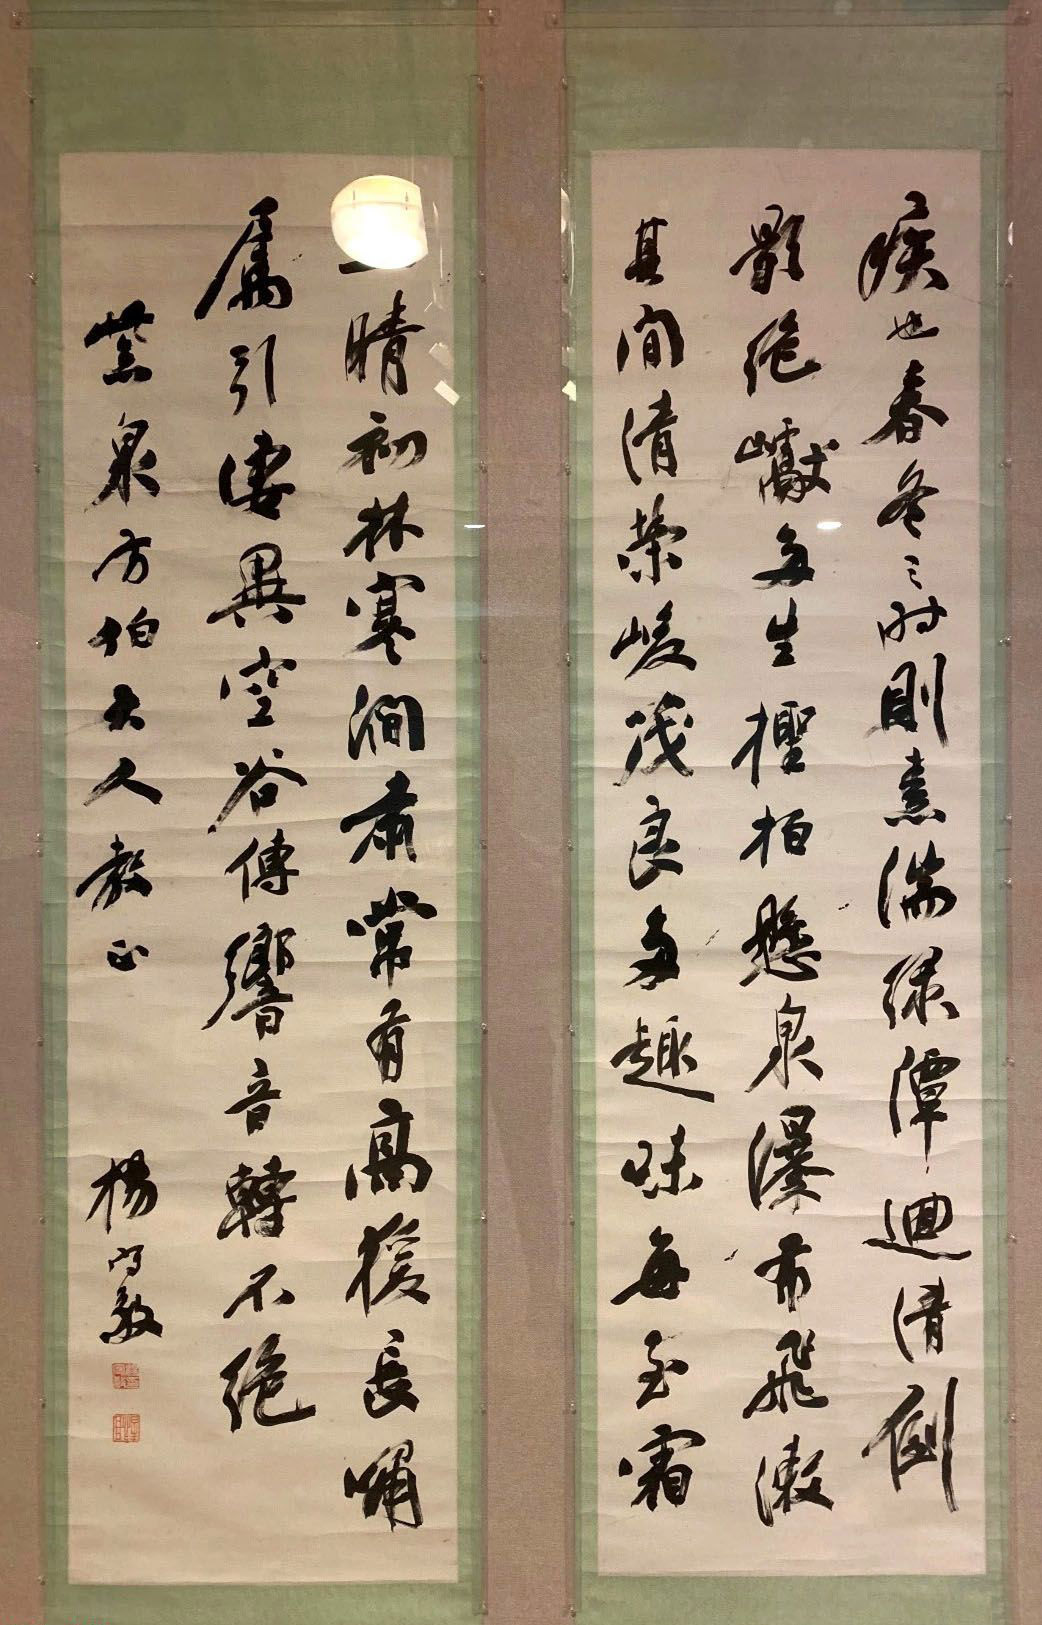 疾也春冬之时則素湍綠潭迴清倒
影絕巘多生檉柏懸泉瀑布飛漱
其间清荣峻茂良多趣味每至霜
晴初林寒澗肅常有高猨長嘯
屬引淒異空谷傳響音轉不絕
泉方伯大人教正
楊守敬